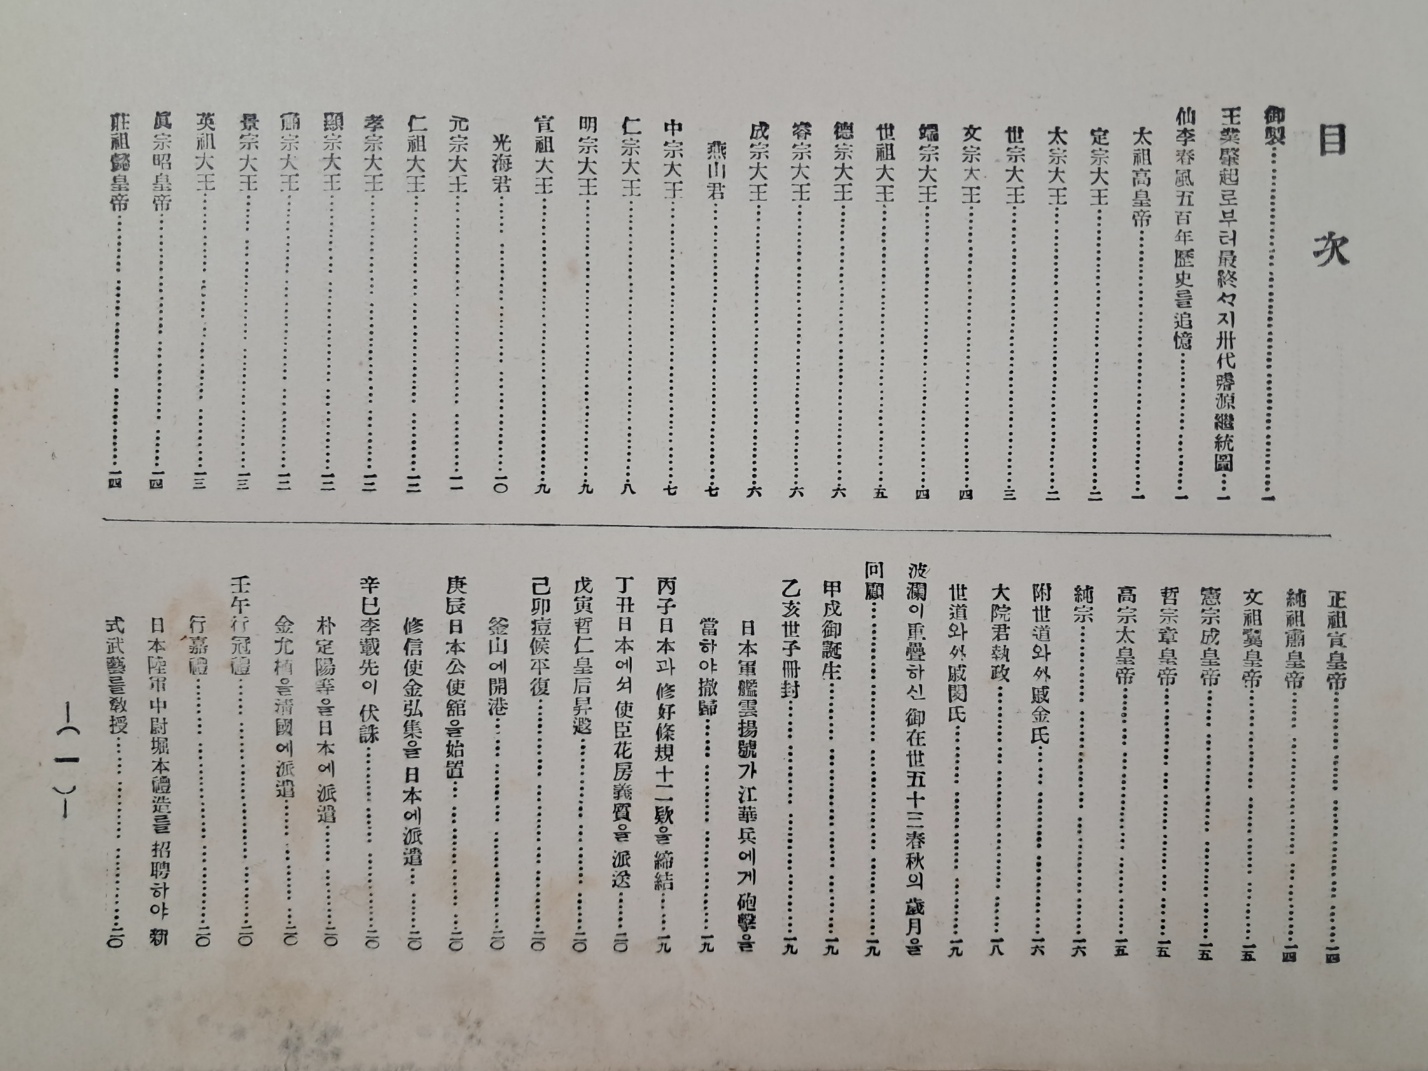 目次
御製……一
王業肇起로부터最終ᄭᅡ지卅代璿源繼統圖……一
仙李春風五百年歷史를追憶……一
太祖高皇帝……一
定宗大王……二
太宗大王……二
世宗大王……三
文宗大王……四
端宗大王……四
世祖大王……五
德宗大王……六
睿宗大王……六
成宗大王……六
燕山君……七
中宗大王……七
仁宗大王……八
明宗大王……九
宣祖大王……九
光海君……一〇
元宗大王……一一
仁祖大王……一二
孝宗大王……一二
顯宗大王……一二
肅宗大王……一二
景宗大王……一三
英祖大王……一三
眞宗昭皇帝……一四
莊祖懿皇帝……一四
正祖宣皇帝……一四
純祖肅皇帝……一四
文祖翼皇帝……一五
憲宗成皇帝……一五
哲宗章皇帝……一五
高宗太皇帝……一五
純宗……一六
附世道와外戚金氏……一六
大院君執政……一八
世道와外戚閔氏……一九
波瀾이重疊하신御在世五十三春秋의歲月을
回顧……一九
甲戌御誕生……一九
乙亥世子冊封……一九
日本軍艦雲揚號가江華兵에게砲擊을
當하야撤歸……一九
丙子日本과修好條規十二欵을締結……一九
丁丑日本에서使臣花房義質을派送……二〇
戊寅哲仁皇后昇遐……二〇
己卯痘候平復……二〇
釜山에開港……二〇
庚辰日本公使舘을始置……二〇
修信使金弘集을日本에派遣……二〇
辛巳李載先이伏誅……二〇
朴定陽等을日本에派遣……二〇
金允植을清國에派遣……二〇
壬午行冠禮……二〇
行嘉禮……二〇
日本陸軍中尉堀本禮造를招聘하야新
式武藝를敎授……二〇
—(一)—